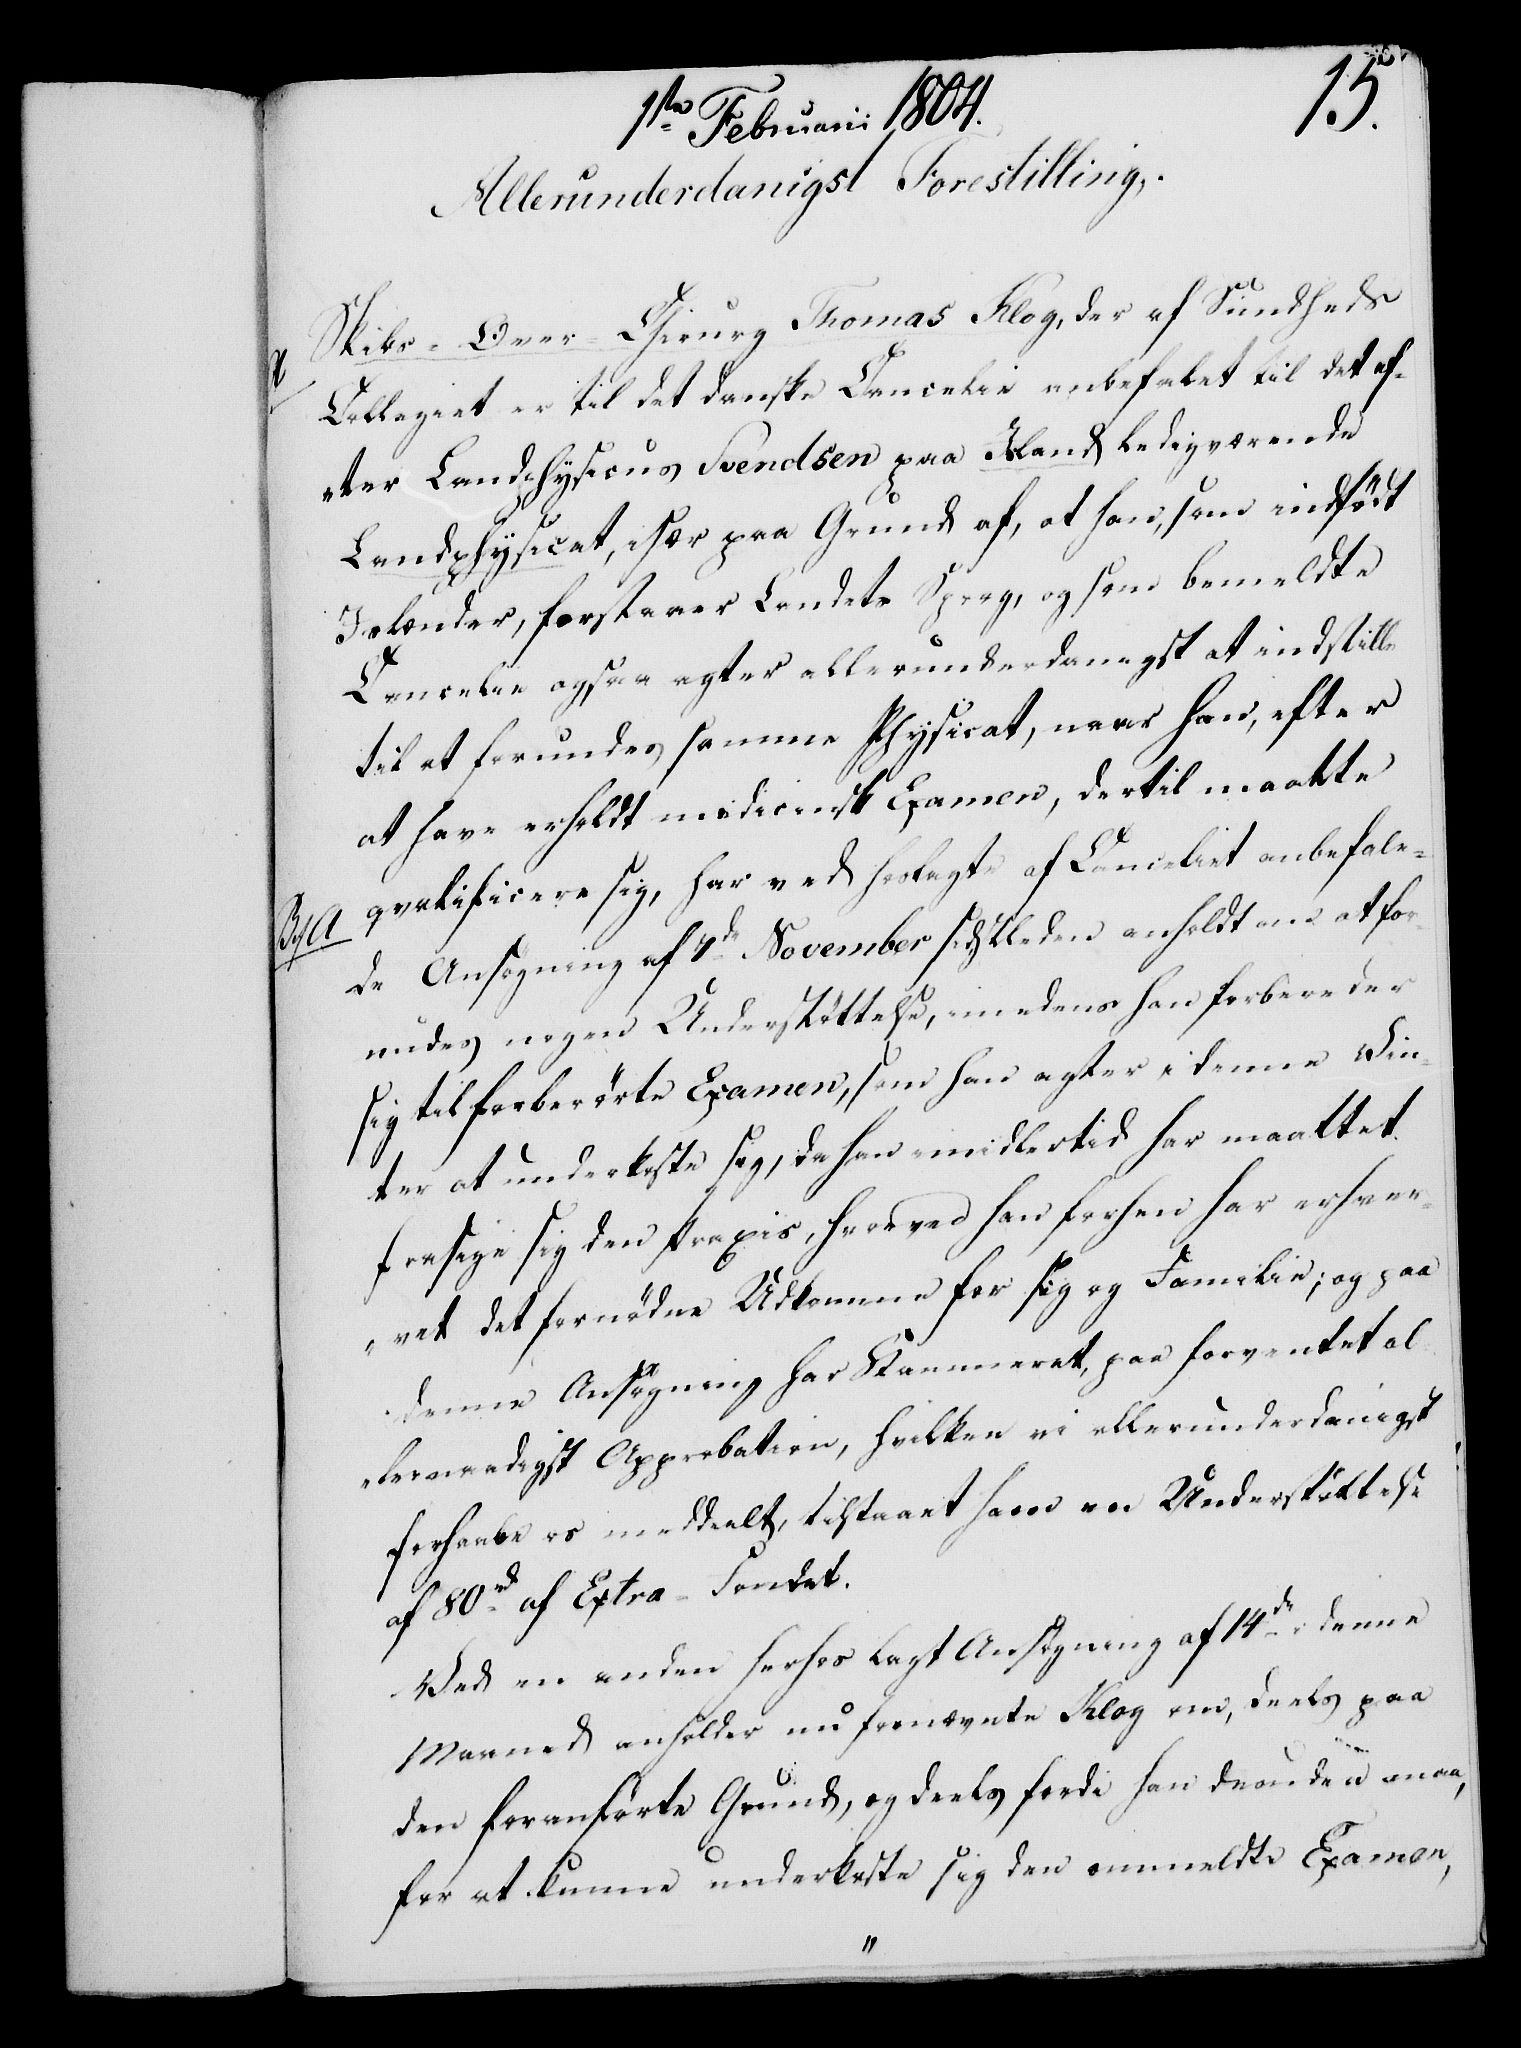 1ste Februarii 1804.
15.
Allerunderdanigst Forestilling.
Skibs-Over-Chirurg Thomas Klog, der af Sundheds
Collegiet er til det danske Cancelie anbefalet til det ef-
ter Landphysicus Svendsen paa Island ledigværende
Landphysicat, især paa Grund af, at han, som indfödt
Islænder, forstaaer Landets Sprog, og som bemeldte
Cancelie ogsaa agter allerunderdanigst at indstille
til at forundes samme Physicat, naar han, efter
at have erholdt medicinsk Examen, dertil maatte
qvalificere sig, har ved hoslagte af Canceliet anbefale-
Bil A
de Ansøgning af 7de November sidstleden anholdt om at for-
undes nogen Understöttelse, imedens han forbereder
sig til forberörte Examen, som han agter i denne Vin-
ter at underkaste sig, da han imidlertid har maattet
frasige sig den Praxis, hvorved han forhen har erhver-
vet det fornödne Udkomme for sig og Familie; og paa
denne Ansøgning har Kammeret, paa forventet al-
lernaadigst Approbation, hvilken vi allerunderdanigst
forhaabe os meddeelt, tilstaaet ham en Understöttelse
af 80 rd af Extra-Fondet.
Ved en anden herhos lagt Ansøgning af 14de i denne
Maaned anholder nu fornævnte Klog om, deels paa
den foranförte Grund, og deels fordi han desuden maa,
for at kunne underkaste sig den ommeldte Examen,
"